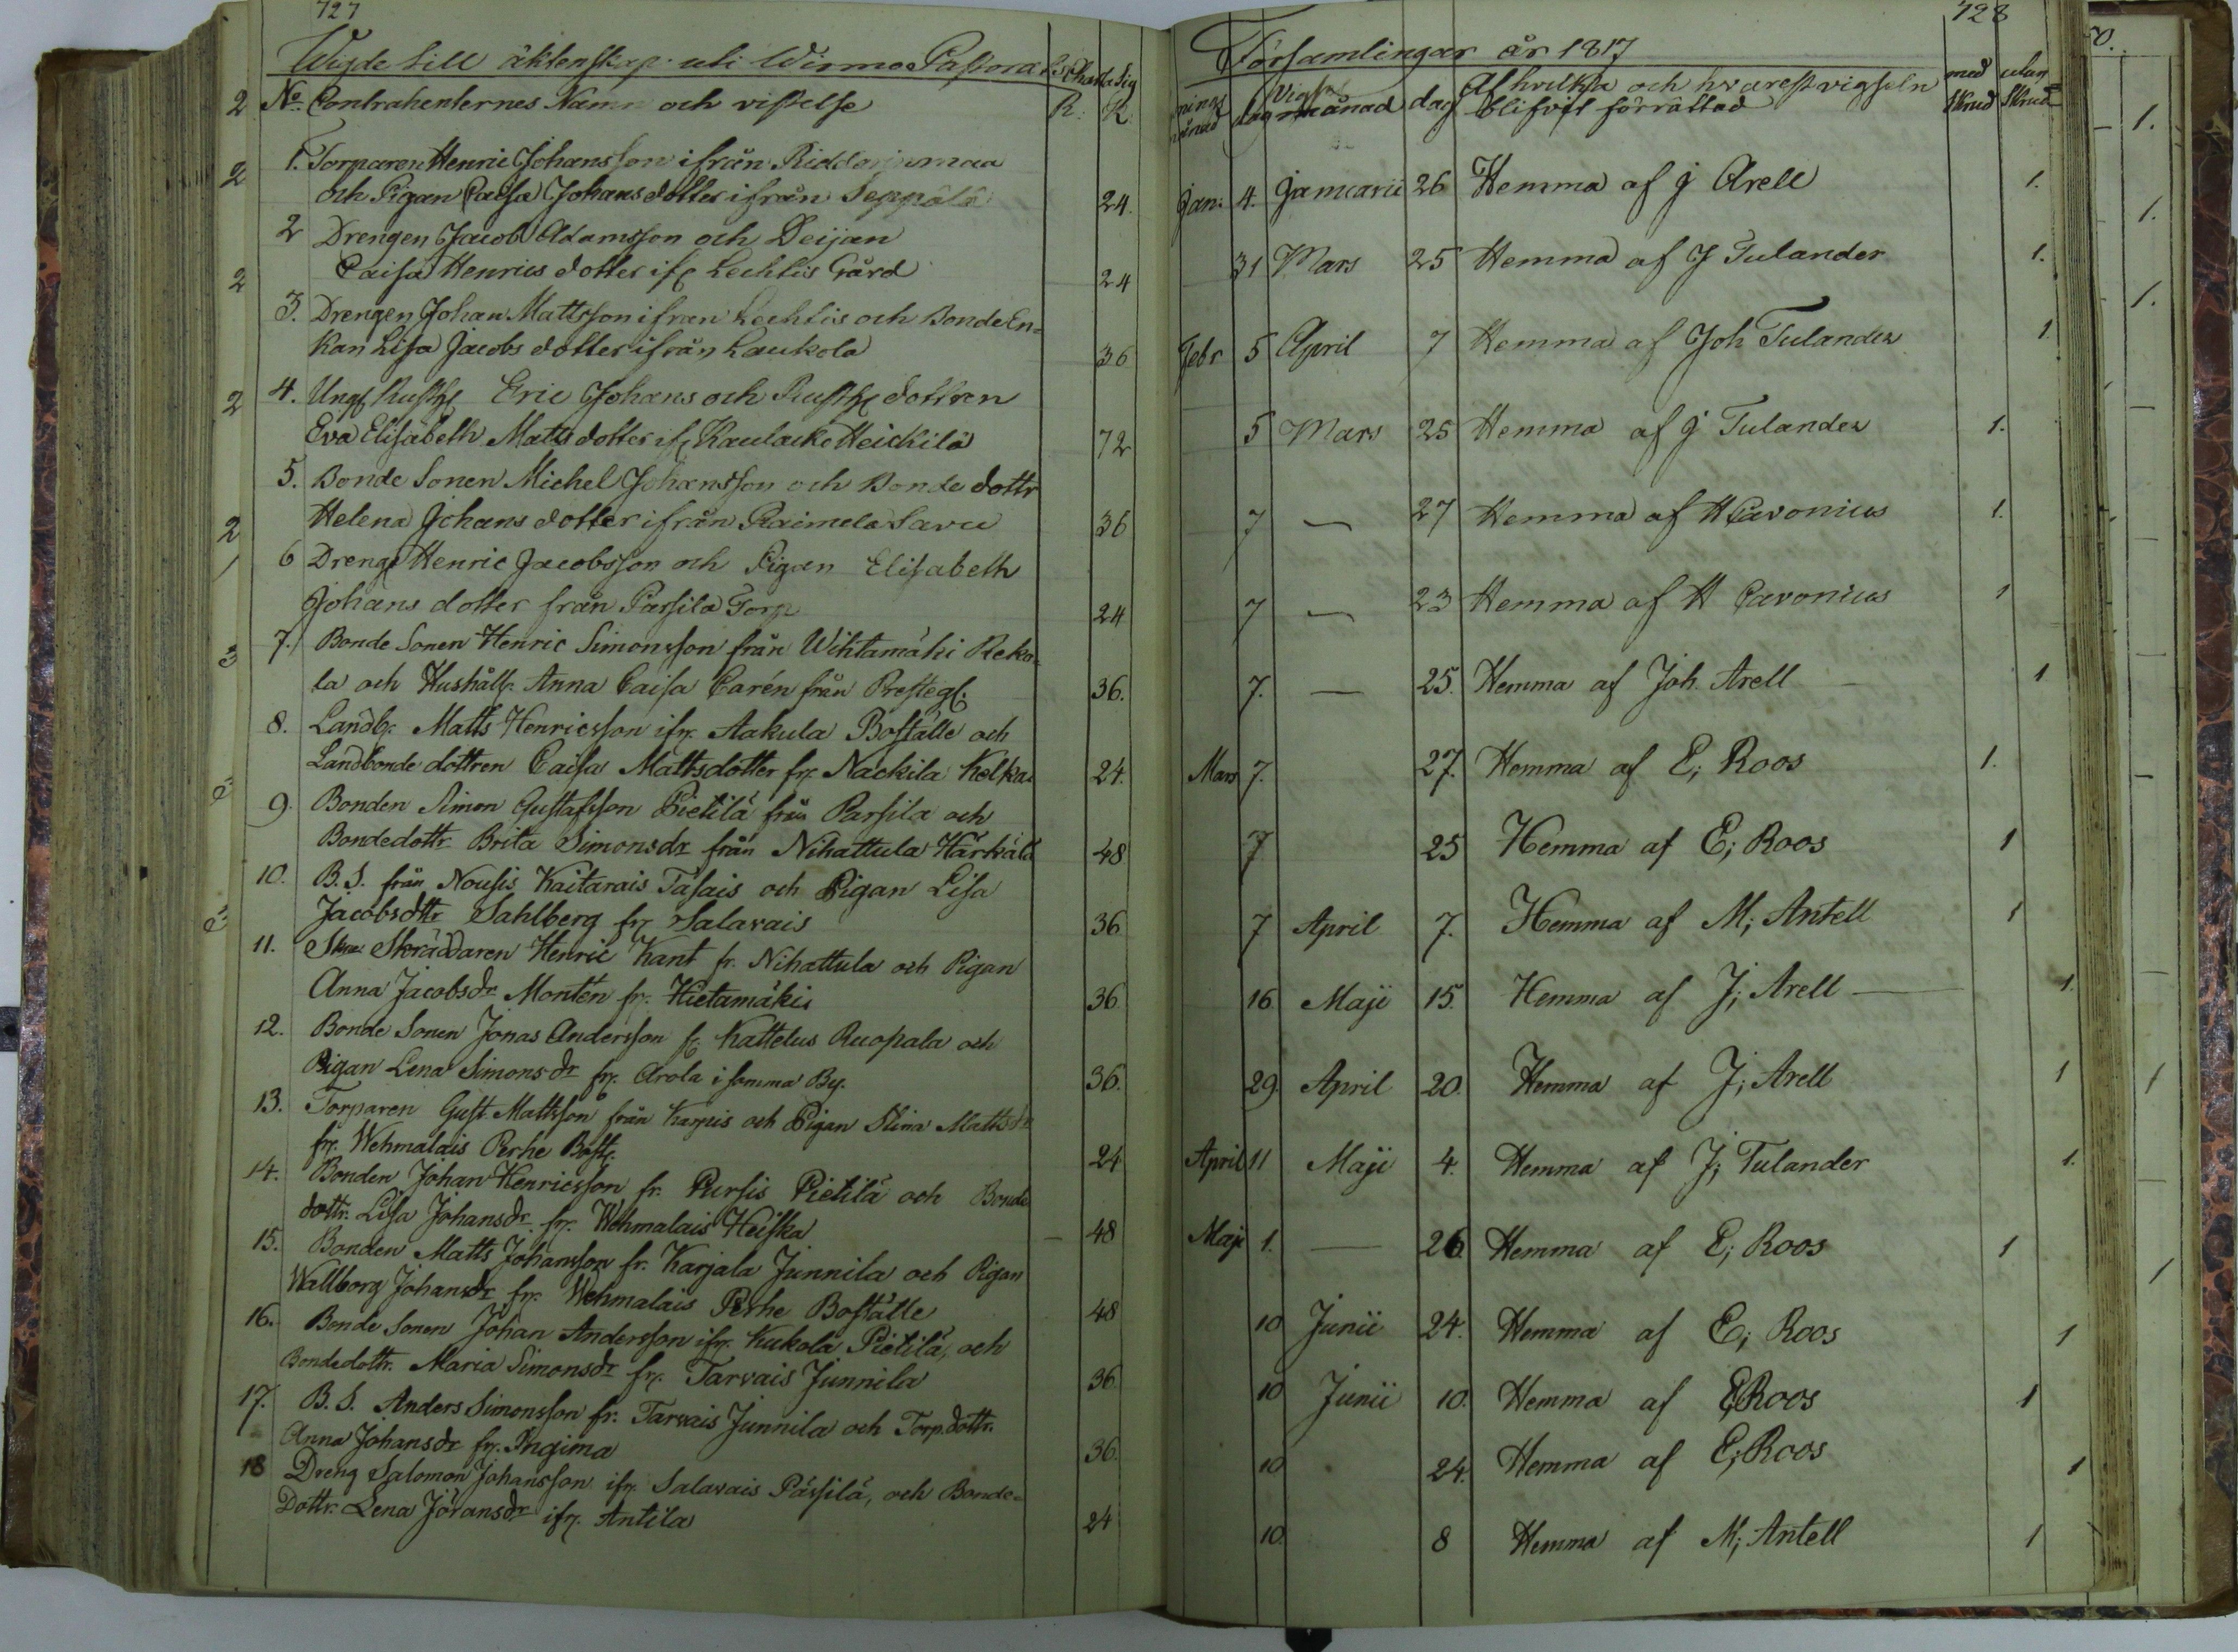 727
Wigde till äktenskap uti Wirmo Pastorats
No. Contrahenternes Namn och vistelse
R. K.
1. Torparen Henric Johansson ifrån
och Pigan Caisa Johans dotter ifrån Seppälä 24.
2 Drengen Jacob Adamsson och Deijan
Caisa Henrics dotter ifr Lechtis Gård 24
3. Drengen Johan Mattsson ifran Lechtis och Bonde En=
kan Lisa Jacobs dotter ifrån Laukola 36
4. Ung Rusth Eric Johans och Rusth dottren
Eva Elisabeth Matts dotter ifr Heickilä 72
5. Bonde Sonen Michel Johansson och Bonde dottr
Helena Johans dotter ifrån Raimela Savu 36
6 Dreng Henric Jacobsson och Pigan Elisabeth
Johans dotter från Parsila Torp 24
7. Bonde Sonen Henric Simonsson från Wihtamäki Reko=
la och Hushåll. Anna Caisa Carén från Prestegl. 36.
8. Landb. Matts Henricsson ifr. Aakula Boställe och
Landbonde dottren Caisa Mattsdotter fr. Nackila Kolkas 24.
9. Bonden Simon Gustafsson Pietilä från Parsila och
Bondedottr Brita Simonsdr från Nihattula Härkälä 48
10. B.S. från Nousis Kaitarais Täsais och Pigan Lisa
Jacobsdttr Sahlberg fr Salavais 36
11. Skräddaren Henric Kant fr. Nihattula och Pigan
Anna Jacobsdr Montén fr. Hietamäki 36
12. Bonde Sonen Jonas Andersson fr Kattelus Ruopala och
Pigan Lena Simonsdr fr. Arola i samma By. 36.
13. Torparen Gust. Mattsson från Karjus och Pigan Stina Mattsdr
fr. Wehmalais Perhe Bost. 24
14. Bonden Johan Henricsson fr. Pursis Pietilä och Bonde
dottr. Lisa Johansdr fr. Wehmalais Heiska 48
15. Bonden Matts Johansson fr. Karjala Junnila och Pigan
Wallborg Johansdr fr. Wehmalais Perhe Boställe 48
16. Bonde Sonen Johan Andersson ifr. Kukola Pietilä, och
Bondedottr. Maria Simonsdr fr. Tarvais Junnila 36
17. B.S. Anders Simonsson fr. Tarvais Junnila och Torp.dottr.
Anna Johansdr fr. Ingima 36
18 Dreng Salomon Johansson ifr. Salavais Pässilä, och Bonde=
Dottr. Lena Jöransdr ifr. Antila 24
728
Församlingar år 1817
månad dag månad dag Af hvilka och hvarest vigseln blifvit förrättad med Skrud utan Skrud
Jan. 4. Januarii 26 Hemma af J Arell 1.
31 Mars 25 Hemma af J Tulander 1.
Febr 5 April 7 Hemma af Joh Tulander 1
5 Mars 25 Hemma af J Tulander 1.
7 — 27 Hemma af H Cavonius 1.
7 — 23 Hemma af H Cavonius 1
7. — 25. Hemma af Joh. Arell 1
Mars 7. 27. Hemma af E; Roos 1.
7 25 Hemma af E; Roos 1
7 April 7. Hemma af M; Antell 1
16 Maji 15. Hemma af J; Arell — 1.
29. April 20. Hemma af J; Arell 1
April 11 Maji 4. Hemma af J; Tulander 1.
Maji 1. — 26 Hemma af E; Roos 1
10 Junii 24. Hemma af E; Roos 1
10 Junii 10. Hemma af E; Roos 1
10 24. Hemma af E; Roos 1
10. 8 Hemma af M; Antell 1